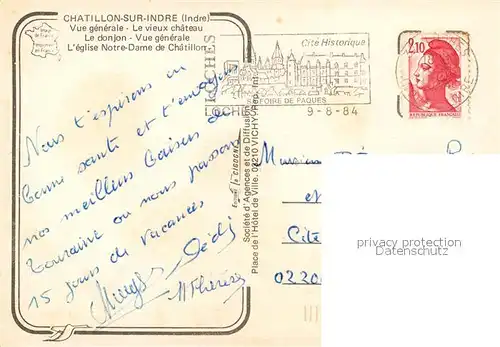 CHATILLON-SUR-INDRE (Indre)
Vue générale - Le vieux château
Le donjon - Vue générale
L'église Notre-Dame de Châtillon
LOCHES
Cité Historique
LOCHES
FOIRE DE PAQUES
9-8-84
2,10
REPUBLIQUE FRANÇAISE
Nous t'espérons en
bonne santé et t'envoyons
nos meilleurs baisers de
Touraine où nous passons
15 jours de vacances
Dédé
M Thérèse
Société d'Agences et de Diffusion
Place de l'Hôtel de Ville. 03210 VICHY (Rep. Int.)
Monsieur
et
Cité
02200
privacy protection
Datenschutz